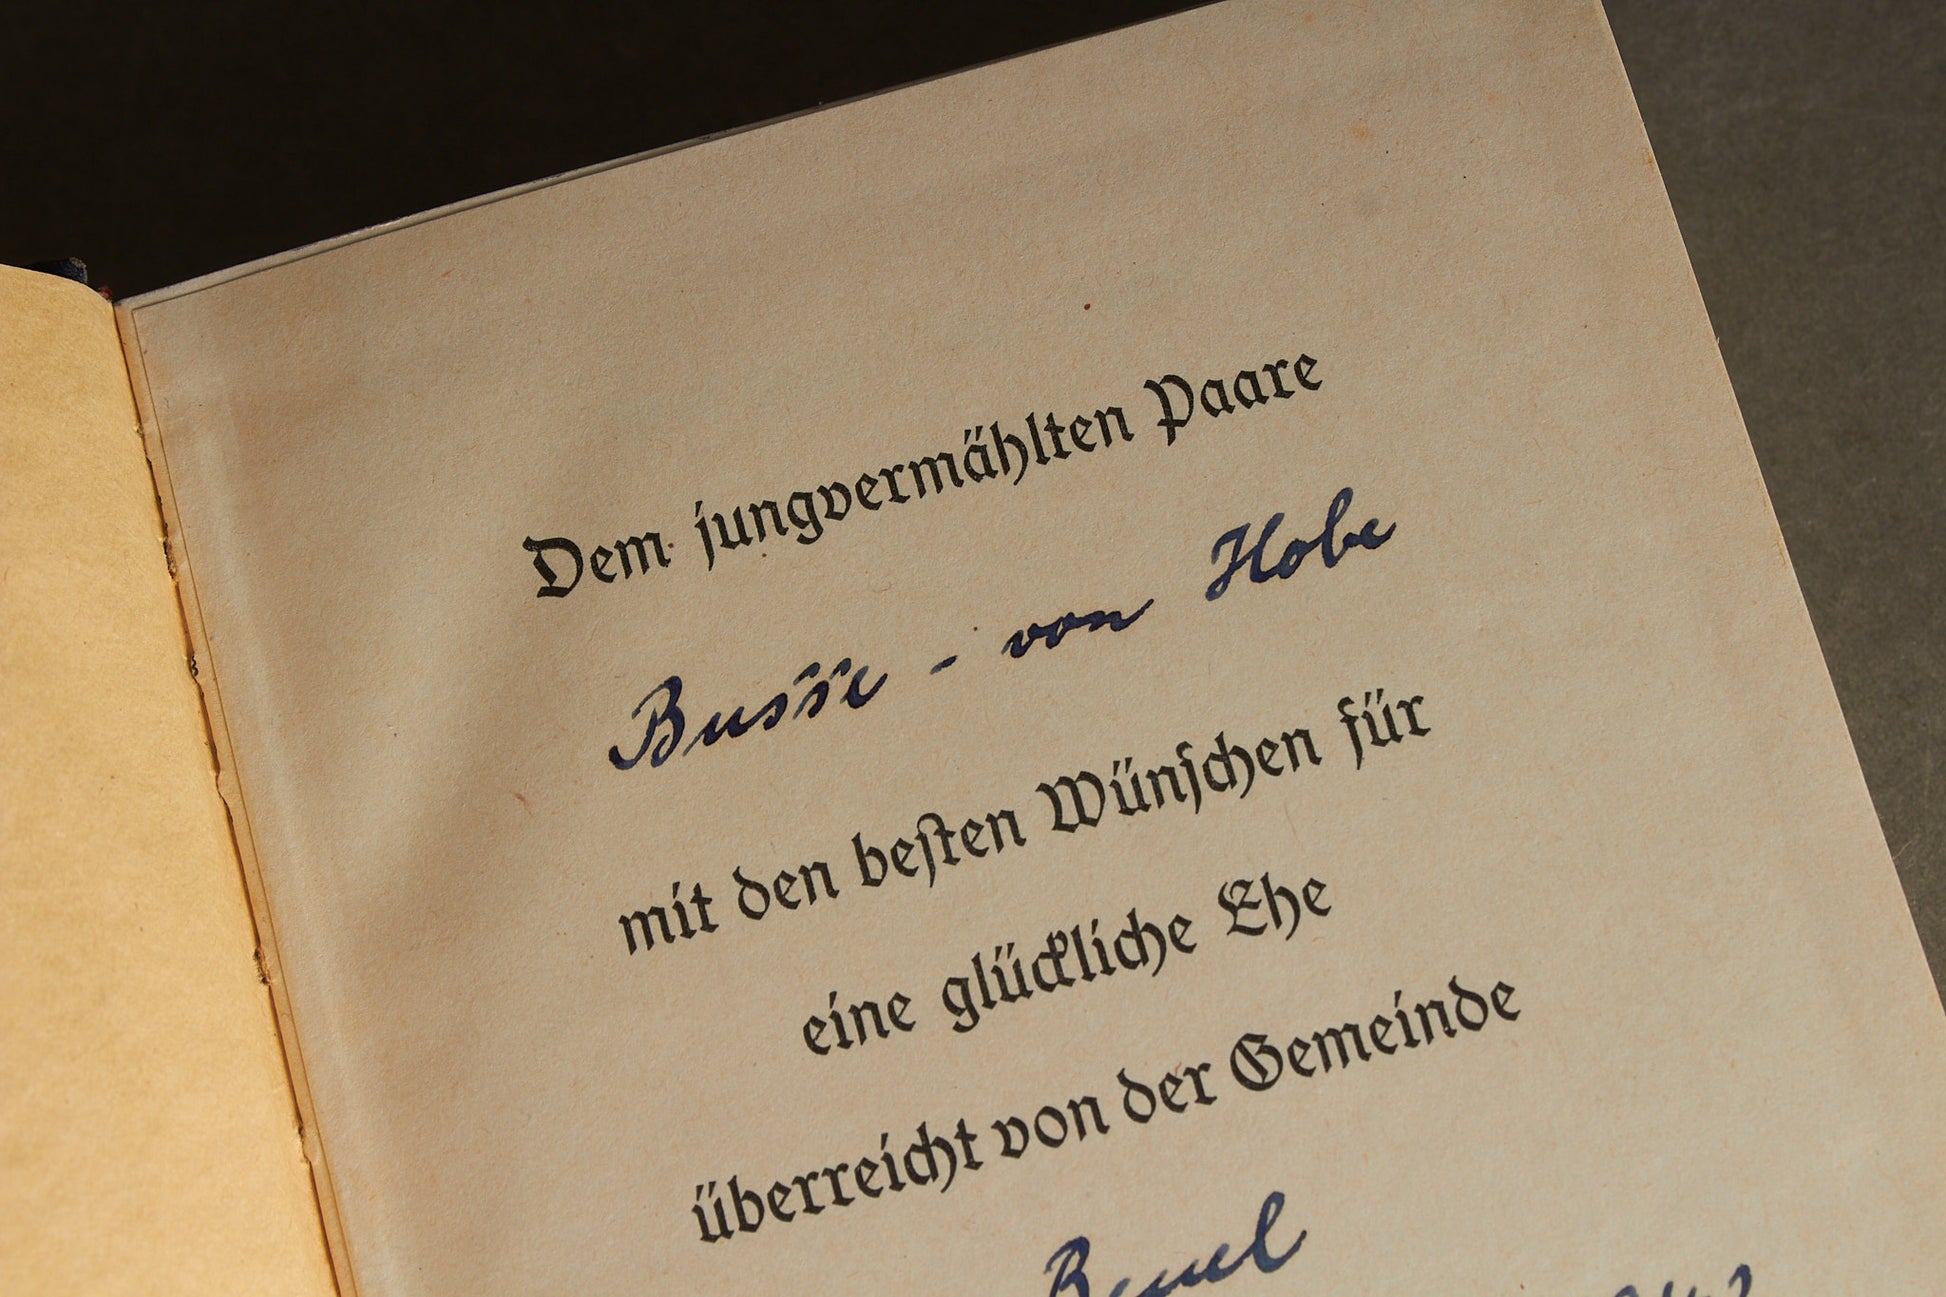 Dem jungvermählten Paare
Busse - von Hobe
mit den besten Wünschen für
eine glückliche Ehe
überreicht von der Gemeinde